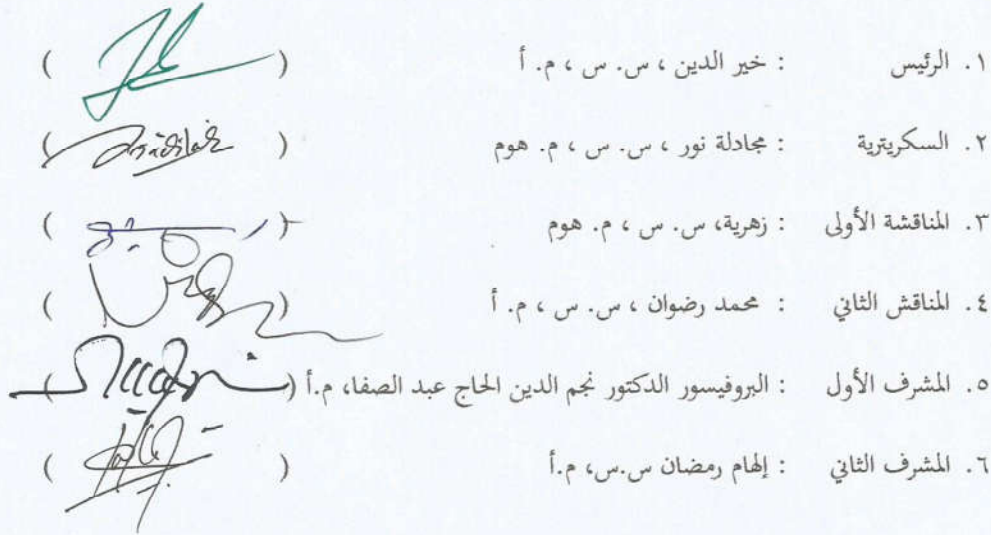 ١. الرئيس : خير الدين ، س. س ، م. أ ( )
٢. السكريترية : مجادلة نور ، س. س ، م. هوم ( )
٣. المناقشة الأولى : زهرية، س. س ، م. هوم ( )
٤. المناقش الثاني : محمد رضوان ، س. س ، م. أ ( )
٥. المشرف الأول : البروفيسور الدكتور نجم الدين الحاج عبد الصفا، م.أ ( )
٦. المشرف الثاني : إلهام رمضان س.س، م.أ ( )